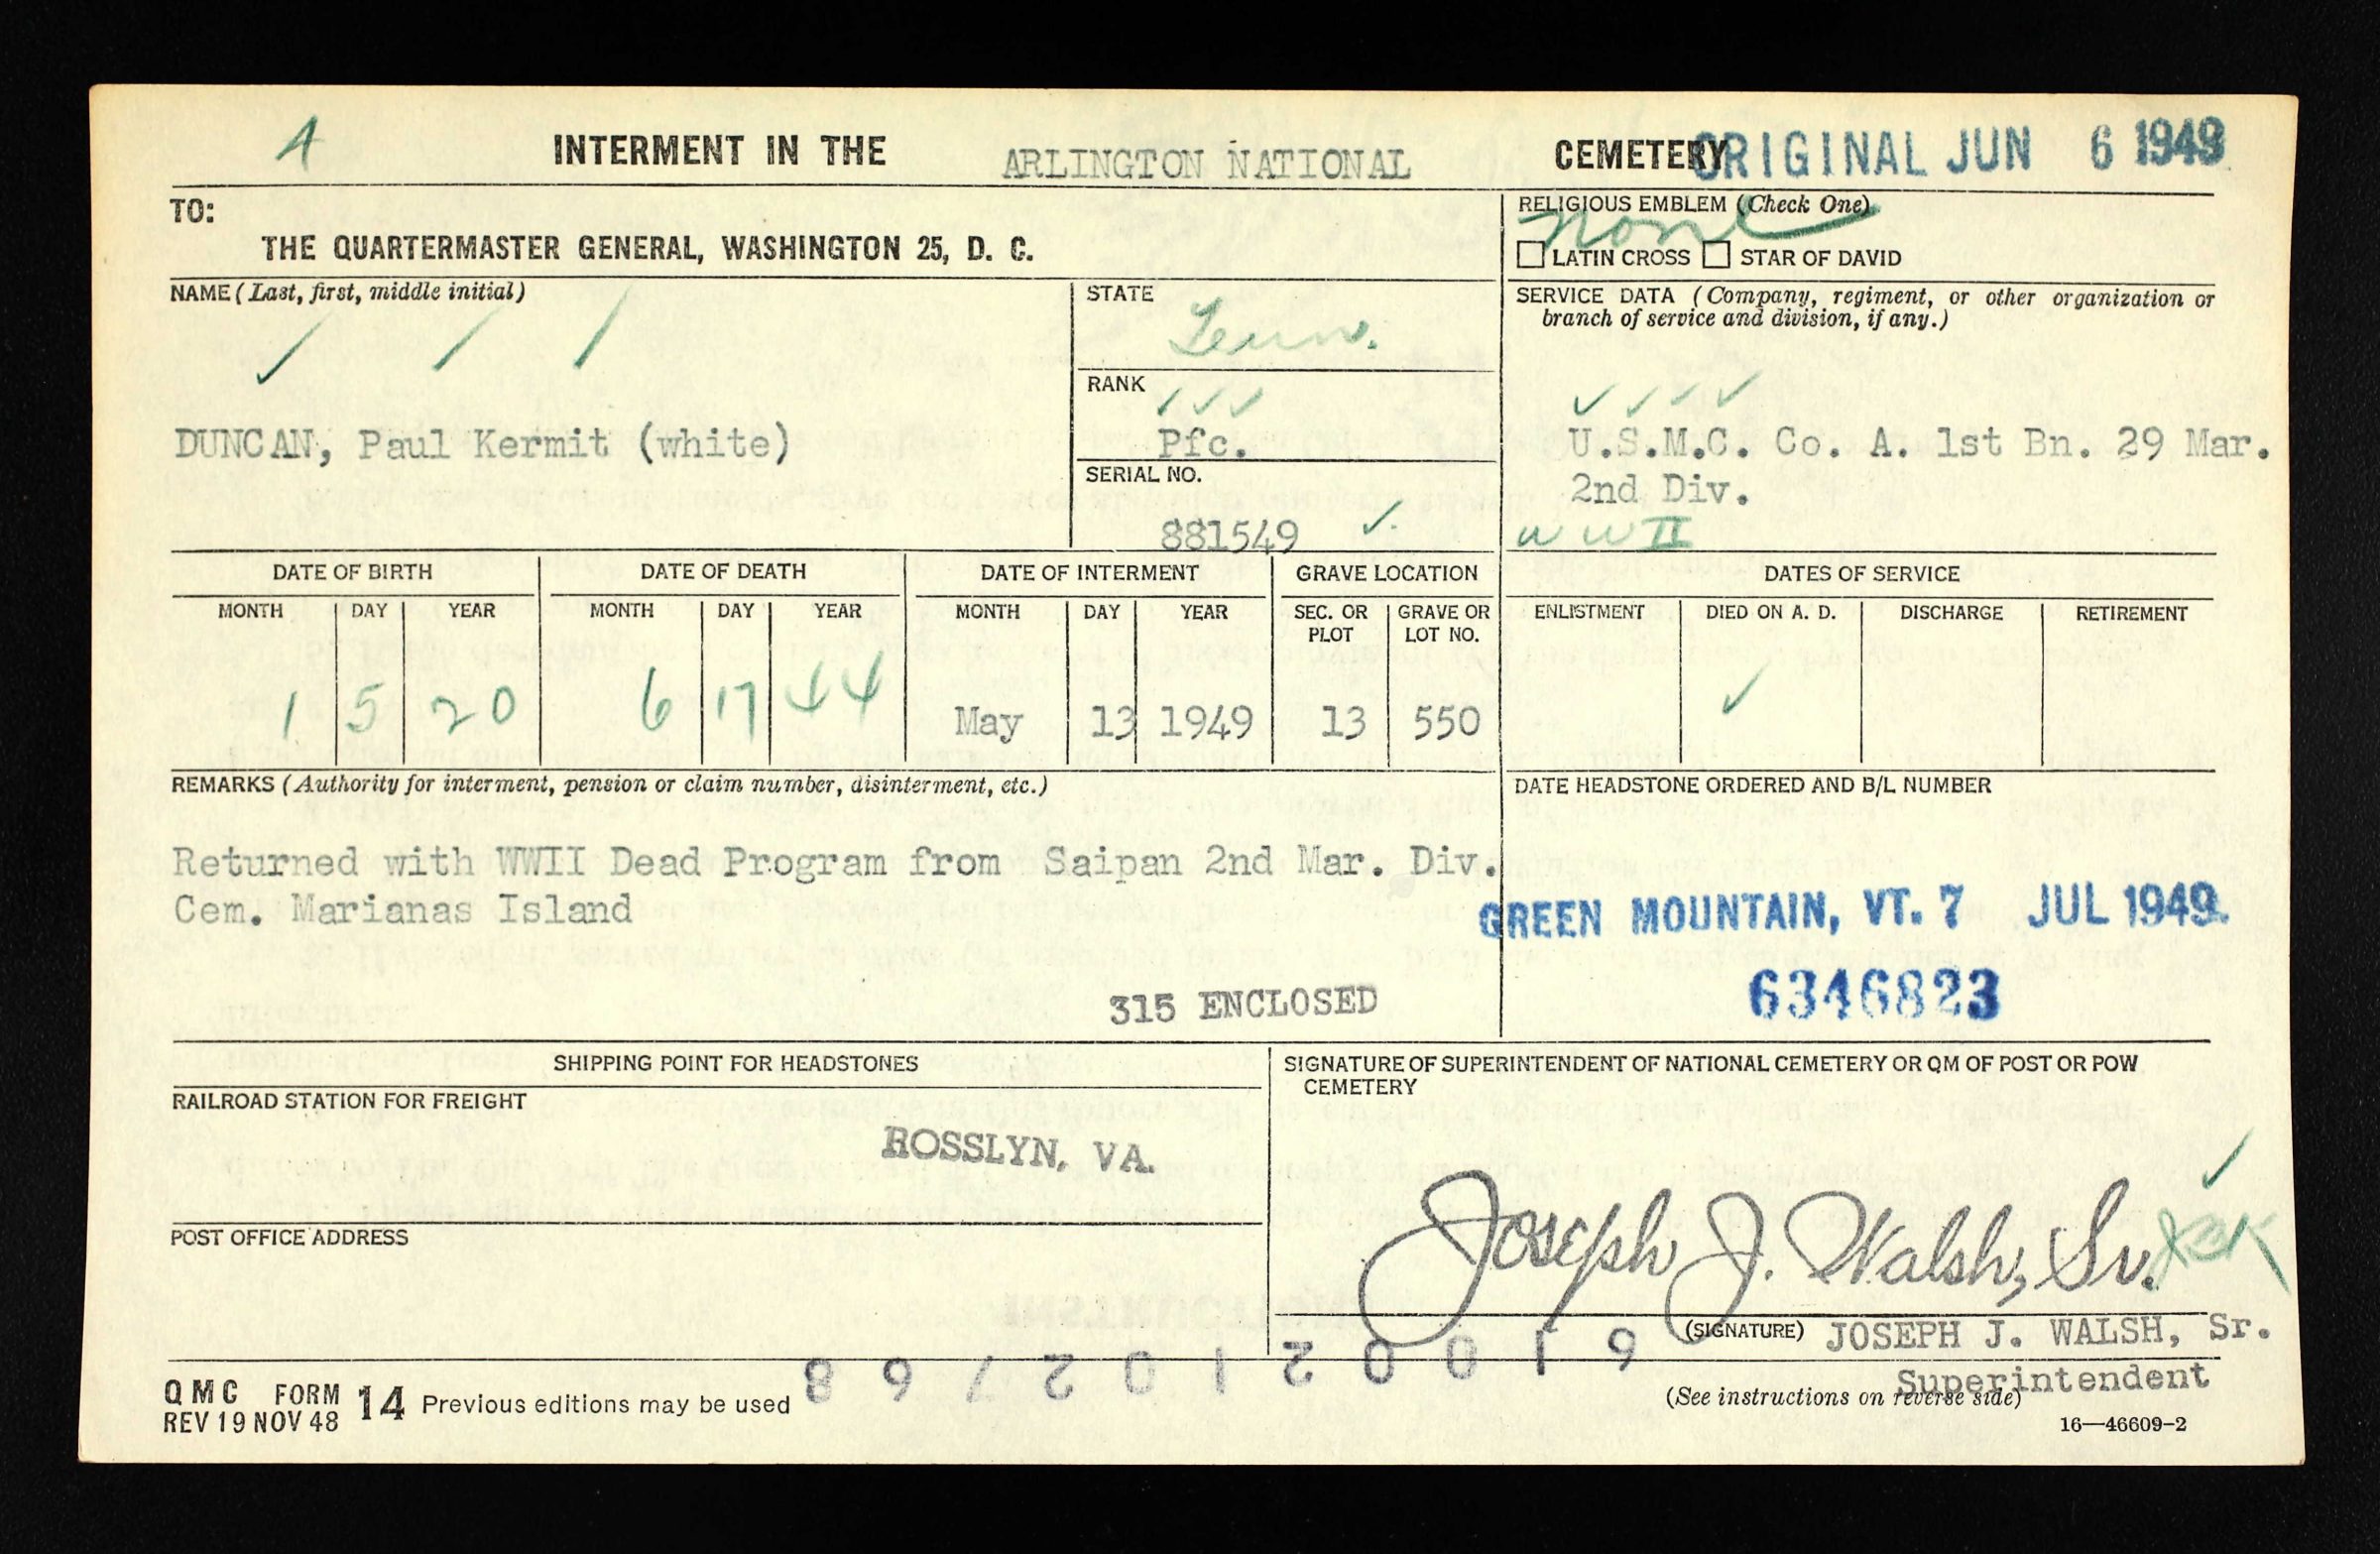 A
INTERMENT IN THE ARLINGTON NATIONAL CEMETERY ORIGINAL JUN 6 1949
TO:
THE QUARTERMASTER GENERAL, WASHINGTON 25, D. C.
RELIGIOUS EMBLEM (Check One)
None
LATIN CROSS STAR OF DAVID
NAME (Last, first, middle initial)
DUNCAN, Paul Kermit (white)
STATE
Tenn.
RANK
Pfc.
SERIAL NO.
881549
SERVICE DATA (Company, regiment, or other organization or
branch of service and division, if any.)
U.S.M.C. Co. A. 1st Bn. 29 Mar.
2nd Div.
WW II
DATE OF BIRTH DATE OF DEATH DATE OF INTERMENT GRAVE LOCATION DATES OF SERVICE
MONTH DAY YEAR MONTH DAY YEAR MONTH DAY YEAR SEC. OR PLOT GRAVE OR LOT NO. ENLISTMENT DIED ON A. D. DISCHARGE RETIREMENT
1 5 20 6 17 44 May 13 1949 13 550 ✓
REMARKS (Authority for interment, pension or claim number, disinterment, etc.)
Returned with WWII Dead Program from Saipan 2nd Mar. Div.
Cem. Marianas Island
315 ENCLOSED
DATE HEADSTONE ORDERED AND B/L NUMBER
GREEN MOUNTAIN, VT. 7 JUL 1949.
6346823
SHIPPING POINT FOR HEADSTONES
RAILROAD STATION FOR FREIGHT
ROSSLYN, VA.
POST OFFICE ADDRESS
SIGNATURE OF SUPERINTENDENT OF NATIONAL CEMETERY OR QM OF POST OR POW
CEMETERY
Joseph J. Walsh, Sr.
(SIGNATURE) JOSEPH J. WALSH, Sr.
Superintendent
(See instructions on reverse side)
16—46609-2
QMC FORM 14 Previous editions may be used
REV 19 NOV 48